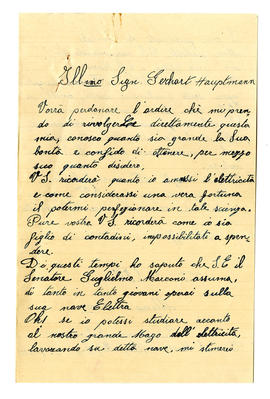 Ill.mo Sign. Gerhart Hauptmann
Vorrà perdonare l'ardire che mi pren
do di rivolgerLe direttamente questa
mia, conosco quanto sia grande la Sua
bontà e confido di ottenere, per mezzo
suo quanto disidero.
V. S. ricorderà quanto io amassi l'elettricità
e come considerassi una vera fortuna
il potermi perfezionare in tale scienza.
Pure vostra V. S. ricorderà come io sia
figlio di contadini, impossibilitati a spen-
dere.
Di questi tempi ho saputo che S. E il
Senatore Guglielmo Marconi assuma,
di tanto in tanto giovani operai sulla
sua nave Elettra.
Oh! se io potessi studiare accanto
al nostro grande Mago dell'elettricità,
lavorando su detta nave, mi stimerei